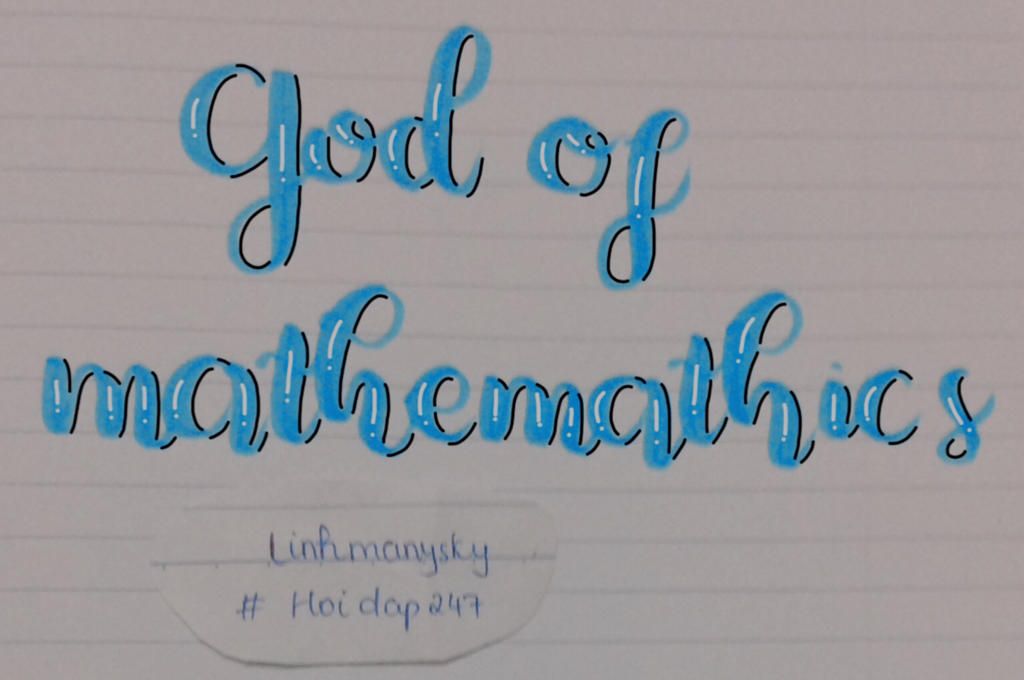 God of
mathemathics
Linhmanysky
# Hoidap247